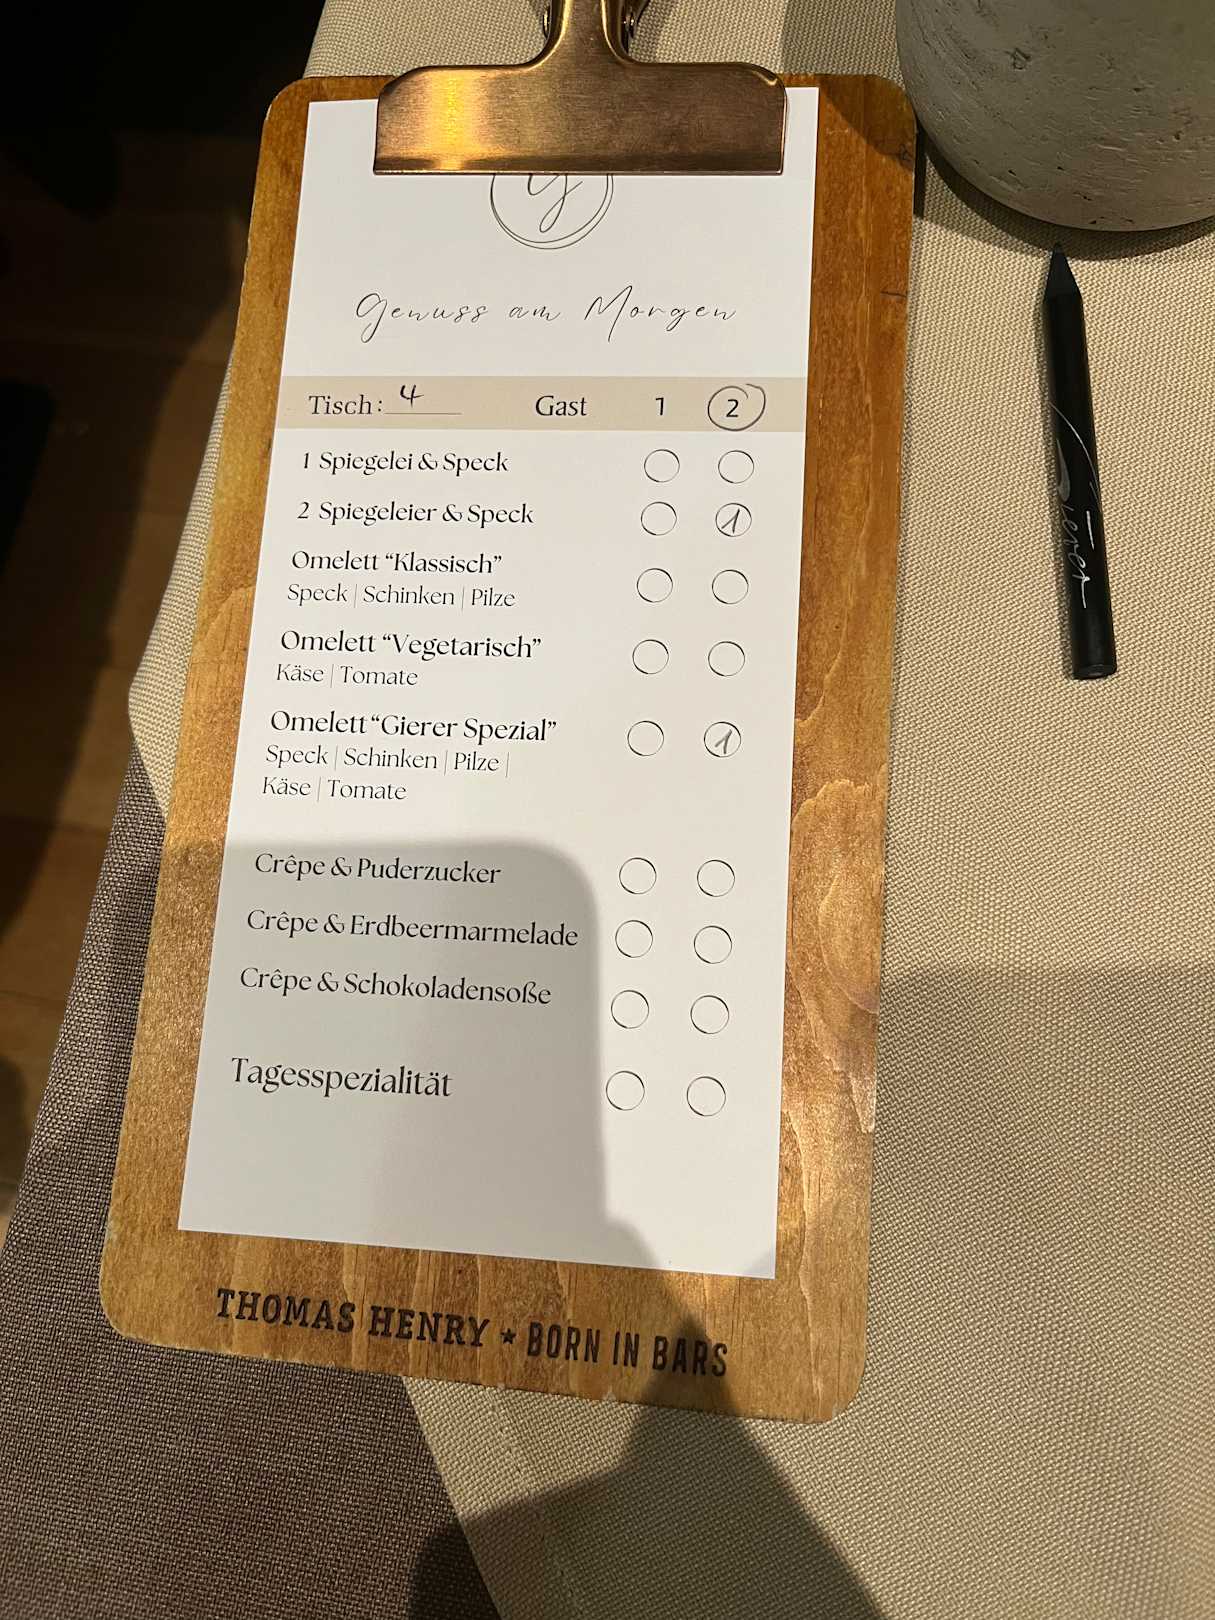 Genuss am Morgen
Tisch: 4 Gast 1 2
1 Spiegelei & Speck
2 Spiegeleier & Speck 1
Omelett “Klassisch”
Speck | Schinken | Pilze
Omelett “Vegetarisch”
Käse | Tomate
Omelett “Gierer Spezial” 1
Speck | Schinken | Pilze |
Käse | Tomate
Crêpe & Puderzucker
Crêpe & Erdbeermarmelade
Crêpe & Schokoladensoße
Tagesspezialität
THOMAS HENRY ★ BORN IN BARS